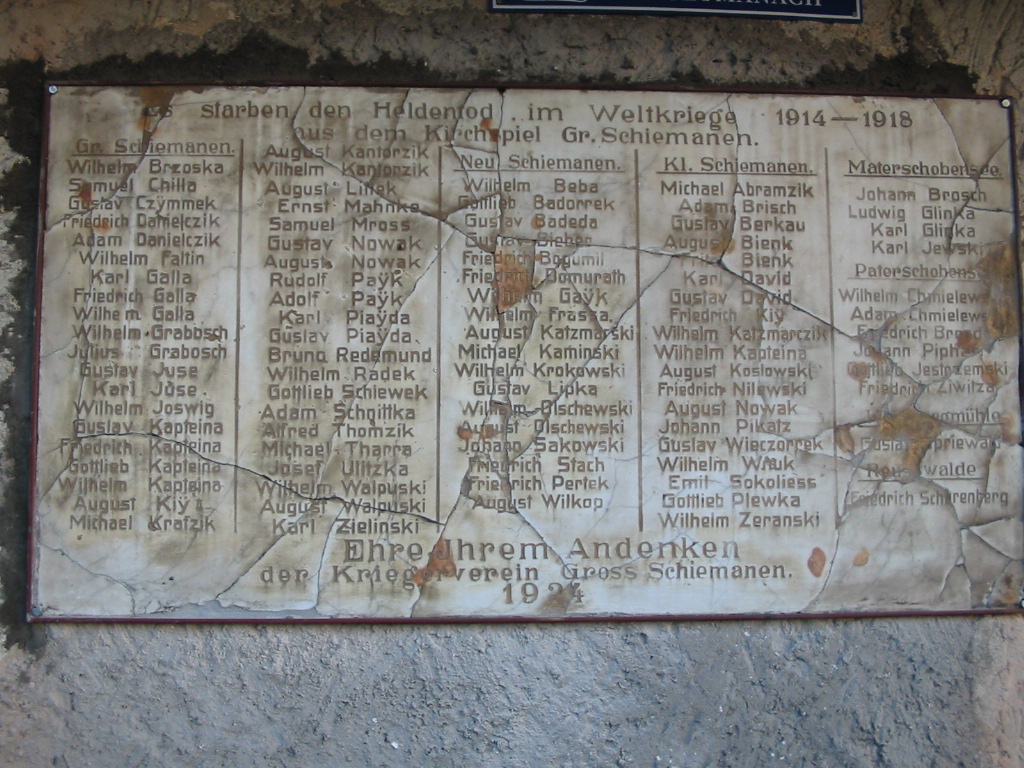 MANACH
Es starben den Heldentod im Weltkriege 1914—1918
aus dem Kirchspiel Gr. Schiemanen.
Gr. Schiemanen.
Wilhelm Brzoska
Samuel Chilla
Gustav Czymmek
Friedrich Danielczik
Adam Danielczik
Wilhelm Faltin
Karl Galla
Friedrich Galla
Wilhelm Galla
Wilhelm Grabbosch
Julius Grabosch
Gustav Juse
Karl Juse
Wilhelm Joswig
Gustav Kapteina
Friedrich Kapteina
Gottlieb Kapteina
Wilhelm Kapteina
August Kiÿ I
Michael Krafzik
August Kantorzik
Wilhelm Kantorzik
August Littek
Ernst Mahnke
Samuel Mross
Gustav Nowak
August Nowak
Rudolf Paÿk
Adolf Paÿk
Karl Piaÿda
Gustav Piaÿda
Bruno Redemund
Wilhelm Radek
Gottlieb Schiewek
Adam Schnittka
Alfred Thomzik
Michael Tharra
Josef Ulitzka
Wilhelm Walpuski
August Walpuski
Karl Zielinski
Neu Schiemanen.
Wilhelm Beba
Gottlieb Badorrek
Gustav Badeda
Gustav Bieber
Friedrich Bogumil
Friedrich Domurath
Wilhelm Gaÿk
Wilhelm Frassa
August Katzmarski
Michael Kaminski
Wilhelm Krokowski
Gustav Lipka
Wilhelm Olschewski
August Olschewski
Johann Sakowski
Friedrich Stach
Friedrich Pertek
August Wilkop
Kl. Schiemanen.
Michael Abramzik
Adam Brisch
Gustav Berkau
August Bienk
Karl Bienk
Karl David
Gustav David
Friedrich Kiÿ
Wilhelm Katzmarczik
Wilhelm Kapteina
August Koslowski
Friedrich Nilewski
August Nowak
Johann Pikatz
Gustav Wieczorrek
Wilhelm Wnuk
Emil Sokoliess
Gottlieb Plewka
Wilhelm Zeranski
Materschobensee.
Johann Brosch
Ludwig Glinka
Karl Glinka
Karl Jewski
Paterschobens
Wilhelm Chmielews
Adam Chmielews
Friedrich
Johann
Gottlieb Jestrzemski
Friedrich Ziwitza
mühle
Gustav
walde
Friedrich Scharenberg
Ehre Ihrem Andenken
der Kriegerverein Gross Schiemanen.
1924